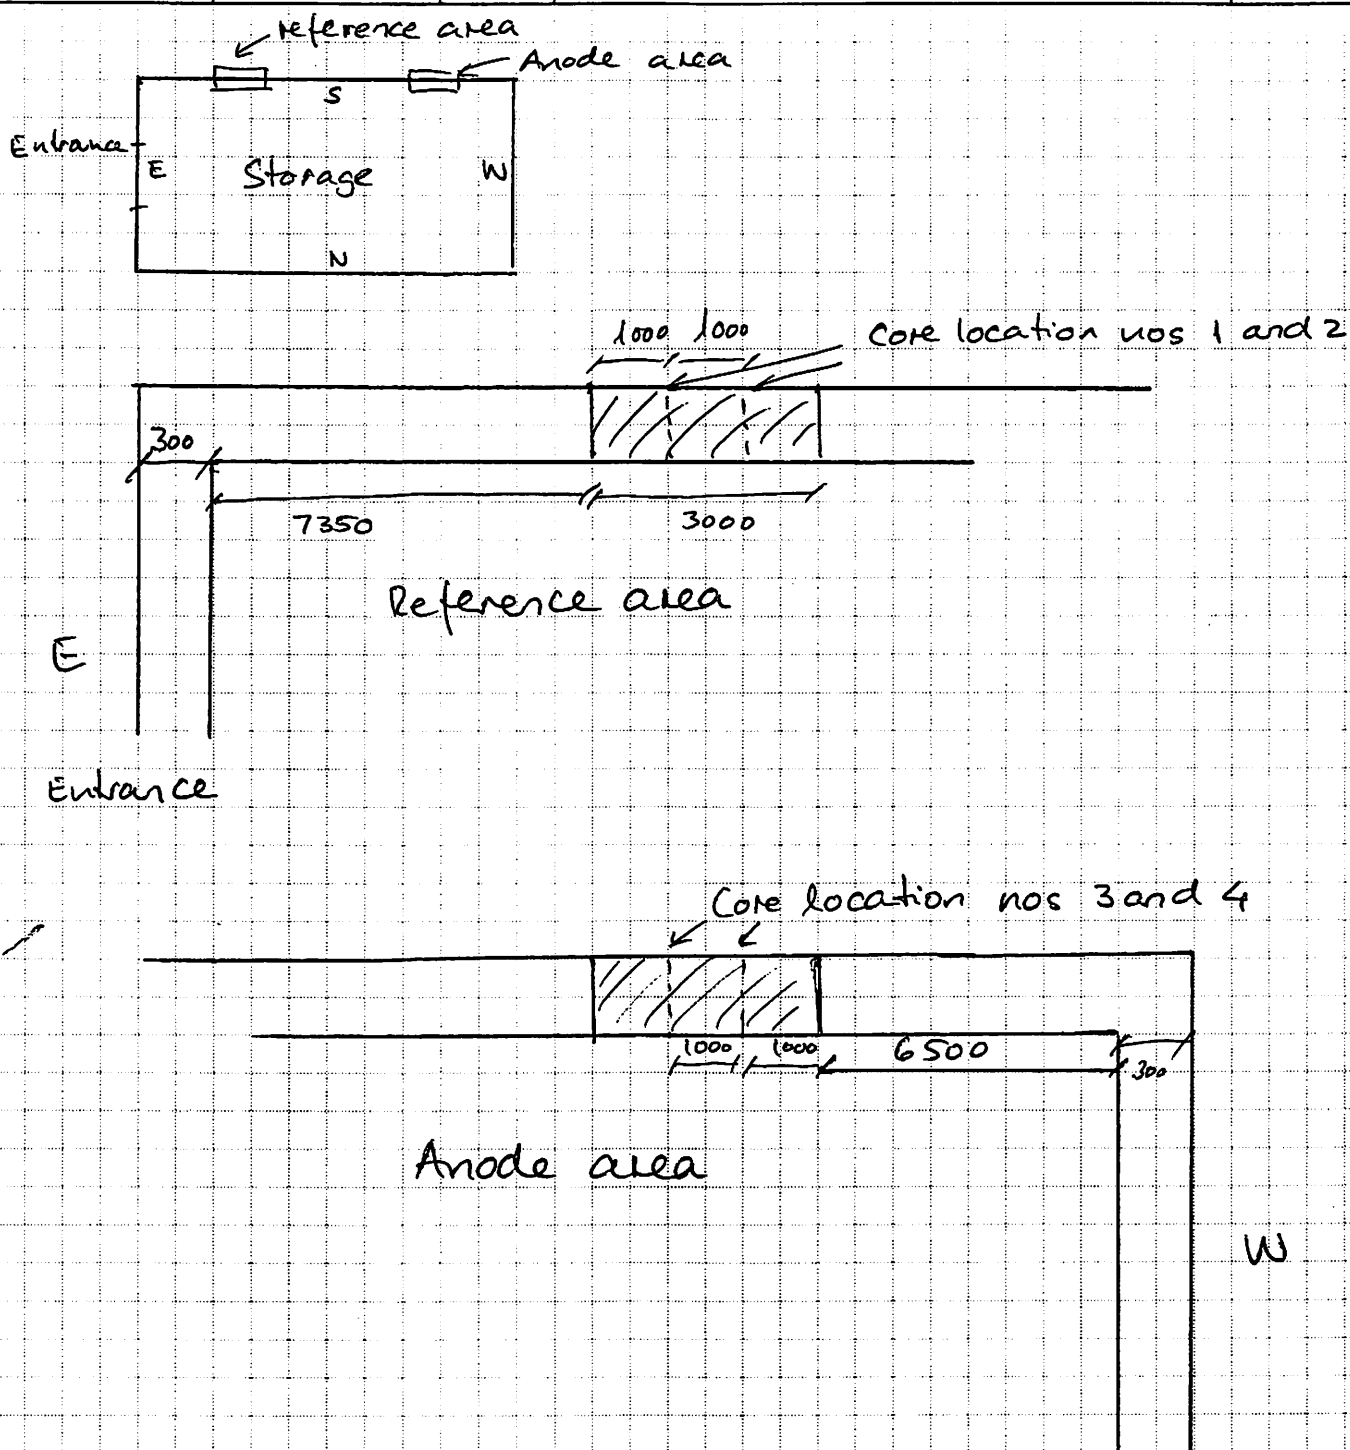 reference area
Anode area
S
Entrance
E
Storage
W
N
1000 1000
Core location nos 1 and 2
300
7350
3000
Reference area
E
Entrance
Core location nos 3 and 4
1000
1000
6500
300
Anode area
W